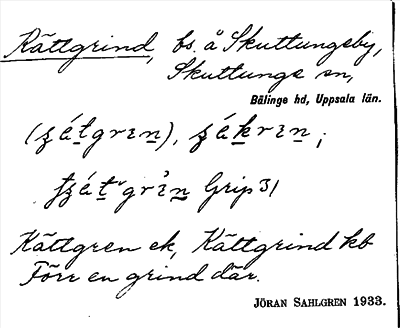 Kättgrind, bs. å Skuttungeby,
Skuttunge sn,
Bälinge hd, Uppsala län.
Grip 31
Kättgren ek, Kättgrind kb
Förr en grind där.
JÖRAN SAHLGREN 1933.